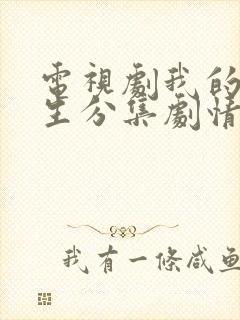 電視劇我的
生分集劇情
我有一條咸鱼